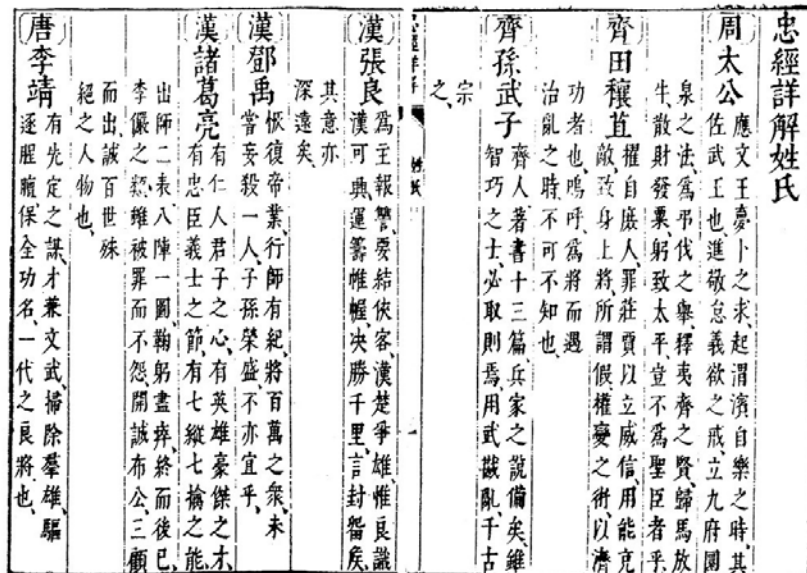 忠經詳解姓氏
周太公
應文王夢卜之求、起渭濱自樂之時、其
佐武王也、進敬怠義欲之戒、立九府圜
泉之法、爲弔伐之舉、釋夷齊之賢、歸馬放
牛、散財發粟、躬致太平、豈不爲聖臣者乎、
齊田穰苴
擢自庶人、罪莊賈以立威信、用能克
敵、致身上將、所謂假權變之術、以濟
功者也、嗚呼、爲將而遇
治亂之時、不可不知也、
齊孫武子
齊人著書十三篇、兵家之說備矣、雖
智巧之士、必取則焉、用武戡亂、千古
宗
之、
忠經詳解
姓氏
漢張良
爲主報讐、要結俠客、漢楚爭雄、惟良識
漢可興、運籌帷幄、决勝千里、言封畱矦、
其意亦
深遠矣、
漢鄧禹
恢復帝業、行師有紀、將百萬之衆、未
嘗妄殺一人、子孫榮盛、不亦宜乎、
漢諸葛亮
有仁人君子之心、有英雄豪傑之才、
有忠臣義士之節、有七縱七擒之能、
出師二表、八陣一圖、鞠躬盡瘁、終而後已、
李儼之類、雖被罪而不怨、開誠布公、三顧
而出、誠百世殊
絕之人物也、
唐李靖
有先定之謀、才兼文武、掃除羣雄、驅
逐腥羶、保全功名、一代之良將也、